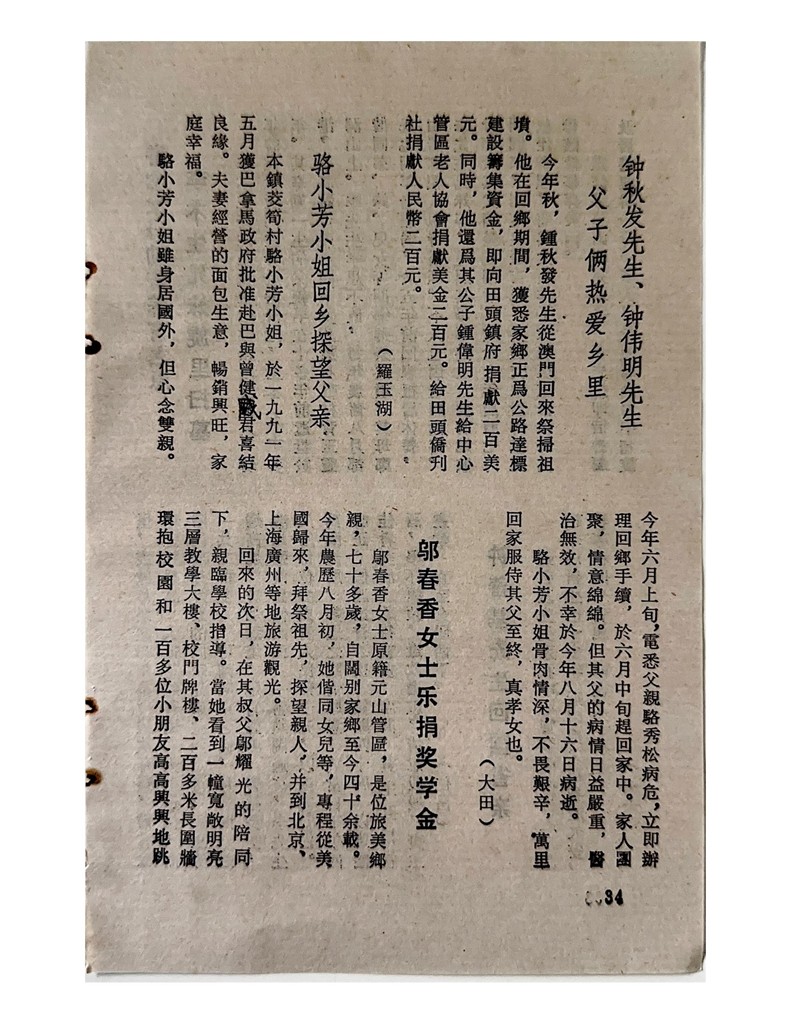 钟秋发先生、钟伟明先生
父子俩热爱乡里
今年秋，鍾秋發先生從澳門回來祭掃祖
墳。他在回鄉期間，獲悉家鄉正爲公路達標
建設籌集資金，即向田頭鎮府捐獻二百美
元。同時，他還爲其公子鍾偉明先生給中心
管區老人協會捐獻美金二百元。給田頭僑刊
社捐獻人民幣二百元。
（羅玉湖）
骆小芳小姐回乡探望父亲
本鎮茭筍村駱小芳小姐，於一九九一年
五月獲巴拿馬政府批准赴巴與曾健君喜結
良緣。夫妻經營的面包生意，暢銷興旺，家
庭幸福。
駱小芳小姐雖身居國外，但心念雙親。
今年六月上旬，電悉父親駱秀松病危，立即辦
理回鄉手續，於六月中旬趕回家中。家人團
聚，情意綿綿。但其父的病情日益嚴重，醫
治無效，不幸於今年八月十六日病逝。
駱小芳小姐骨肉情深，不畏艱辛，萬里
回家服侍其父至終，真孝女也。
（大田）
邬春香女士乐捐奖学金
鄔春香女士原籍元山管區，是位旅美鄉
親，七十多歲，自闊别家鄉至今四十余載。
今年農歷八月初，她偕同女兒等，專程從美
國歸來，拜祭祖先，探望親人，并到北京、
上海廣州等地旅游觀光。
回來的次日，在其叔父鄔耀光的陪同
下，親臨學校指導。當她看到一幢寬敞明亮
三層教學大樓、校門牌樓、二百多米長圍牆
環抱校園和一百多位小朋友高高興興地跳
34